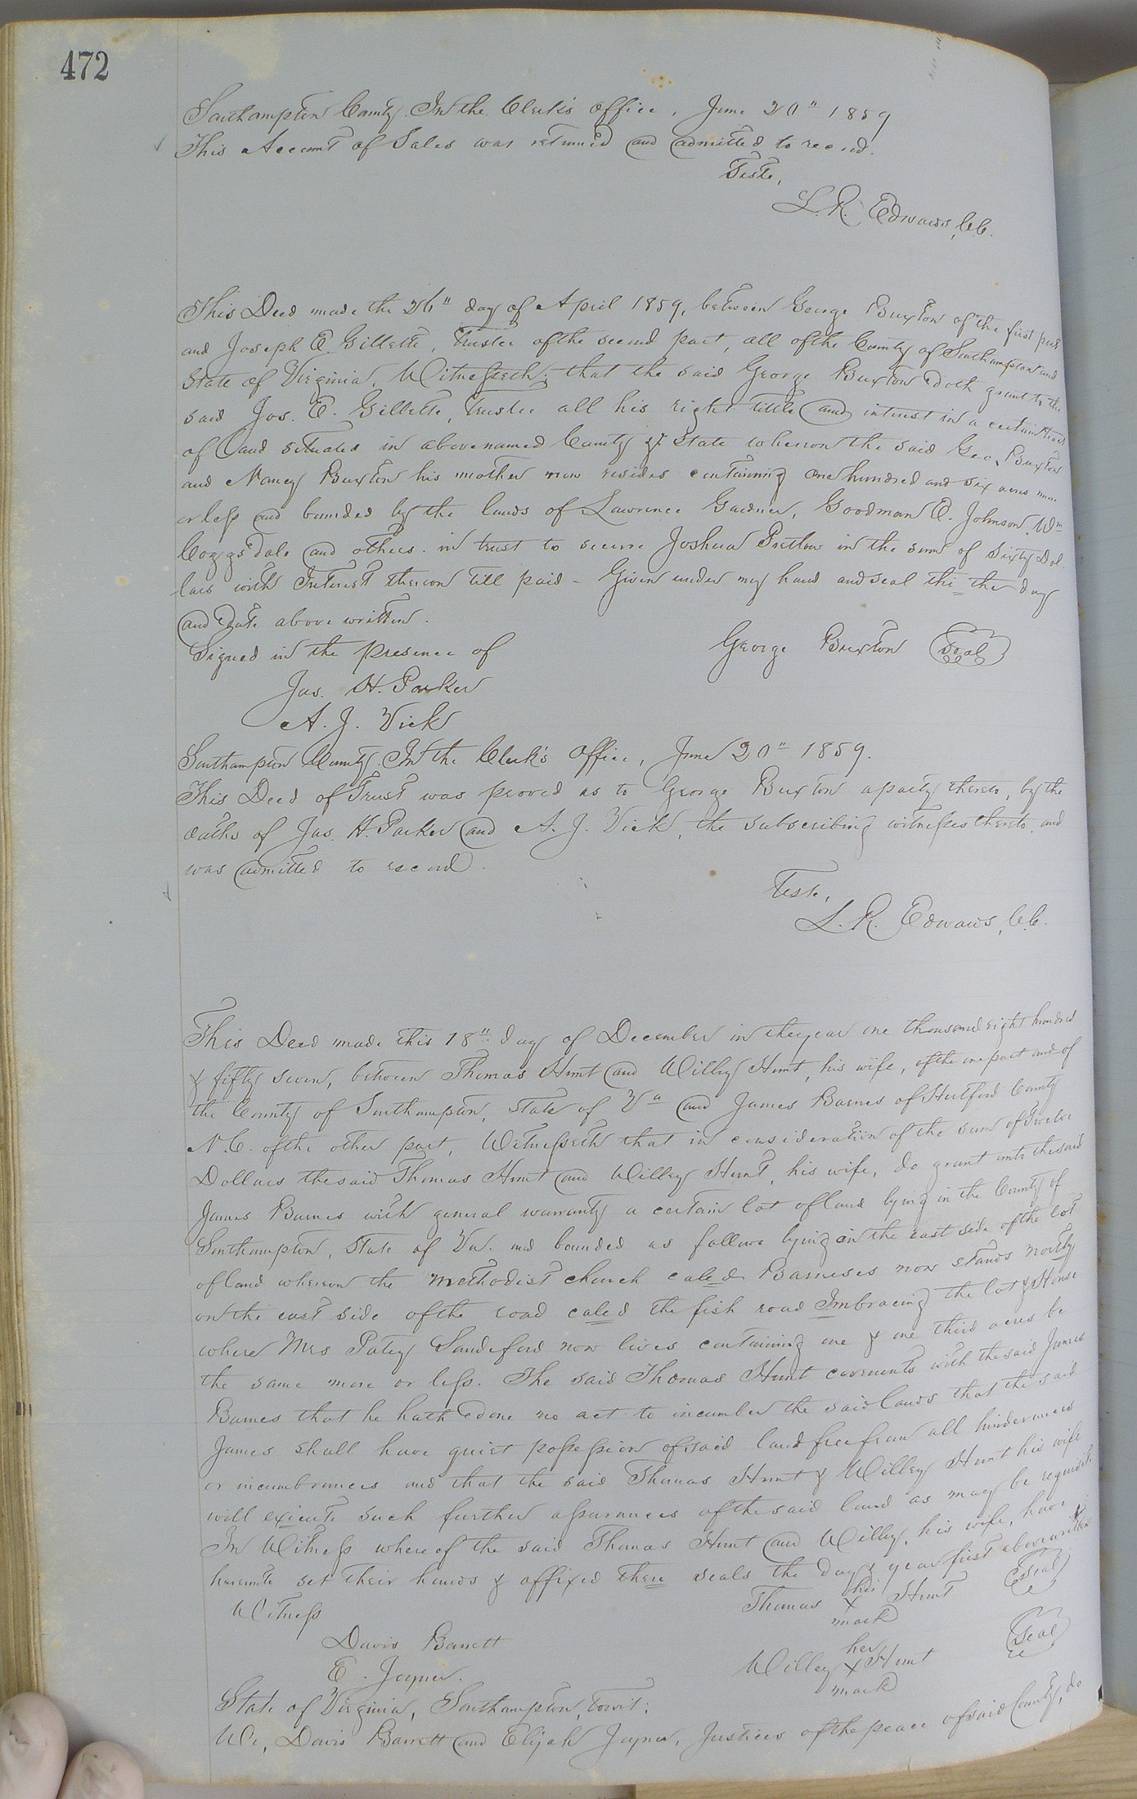 472
Southampton County. In the Clerk's Office, June 20" 1859
This Account of Sales was returned and admitted to record.
Teste,
L. R. Edwards, C.C.
This Deed made the 26" day of April 1859, between George Buxton of the first part
and Joseph E. Gillette, Trustee of the second part, all of the County of Southampton and
State of Virginia, Witnesseth; that the said George Buxton doth grant to the
said Jos. E. Gillette, Trustee all his right title and interest in a certain tract
of land situate in above named County & State whereon the said Geo. Buxton
and Nancy Buxton his mother now resides containing One hundred and six acres more
or less and bounded by the lands of Lawrence Gardner, Goodman E. Johnson, Wm
Coggsdale and others. in trust to secure Joshua Pretlow in the sum of Sixty Dol-
lars with Interest thereon till paid - Given under my hand and seal this the day
and date above written.
Signed in the presence of George Buxton Seal
Jas. H. Parker
A. J. Vick
Southampton County. In the Clerk's Office, June 20" 1859.
This Deed of Trust was proved as to George Buxton a party thereto, by the
oaths of Jas. H. Parker and A. J. Vick, the subscribing witnesses thereto, and
was admitted to record.
Teste,
L. R. Edwards, C.C.
This Deed made this 18" day of December in the year one thousand eight hundred
& fifty seven, between Thomas Hunt and Willey Hunt, his wife, of the one part and of
the County of Southampton, State of Va and James Barnes of Hertford County
N.C. of the other part, Witnesseth that in consideration of the sum of Twelve
Dollars the said Thomas Hunt and Willey Hunt, his wife, do grant unto the said
James Barnes with general warranty a certain lot of land lying in the County of
Southampton, State of Va. and bounded as follows lying on the east side of the lot
of land whereon the Methodist Church caled Barneses now stands mostly
on the east side of the road caled the fish road Imbracing the lot & House
where Mrs Patey Sandeford now lives containing one & one third acres be
the same more or less. The said Thomas Hunt covenants with the said James
Barnes that he hath done no act to incumber the said lands that the said
James shall have quiet possession of said land free from all hinderances
or incumbrances and that the said Thomas Hunt & Willey Hunt his wife
will execute such further assurances of the said land as may be requisite
In Witness whereof the said Thomas Hunt and Willey, his wife, have
hereunto set their hands & affixed there seals the day & year first above written
Witness Thomas his X mark Hunt Seal
Davis Barrett
E. Joyner. Willey her X mark Hunt Seal
State of Virginia, Southampton, towit:
We, Davis Barrett and Elijah Joyner, Justices of the peace of said County, do